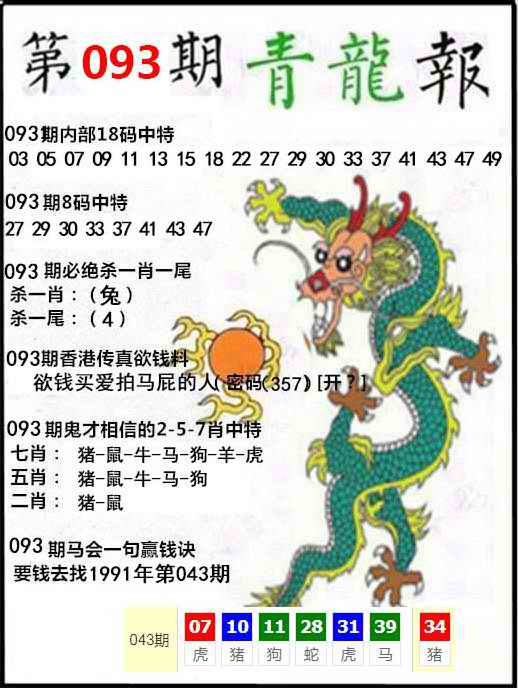 第093期青龍報
093期内部18码中特
03 05 07 09 11 13 15 18 22 27 29 30 33 37 41 43 47 49
093期8码中特
27 29 30 33 37 41 43 47
093期必绝杀一肖一尾
杀一肖：（兔）
杀一尾：（4）
093期香港传真欲钱料
欲钱买爱拍马屁的人(密码(357)[开?]
093期鬼才相信的2-5-7肖中特
七肖： 猪-鼠-牛-马-狗-羊-虎
五肖： 猪-鼠-牛-马-狗
二肖： 猪-鼠
093期马会一句赢钱诀
要钱去找1991年第043期
043期 07 10 11 28 31 39 34
虎 猪 狗 蛇 虎 马 猪